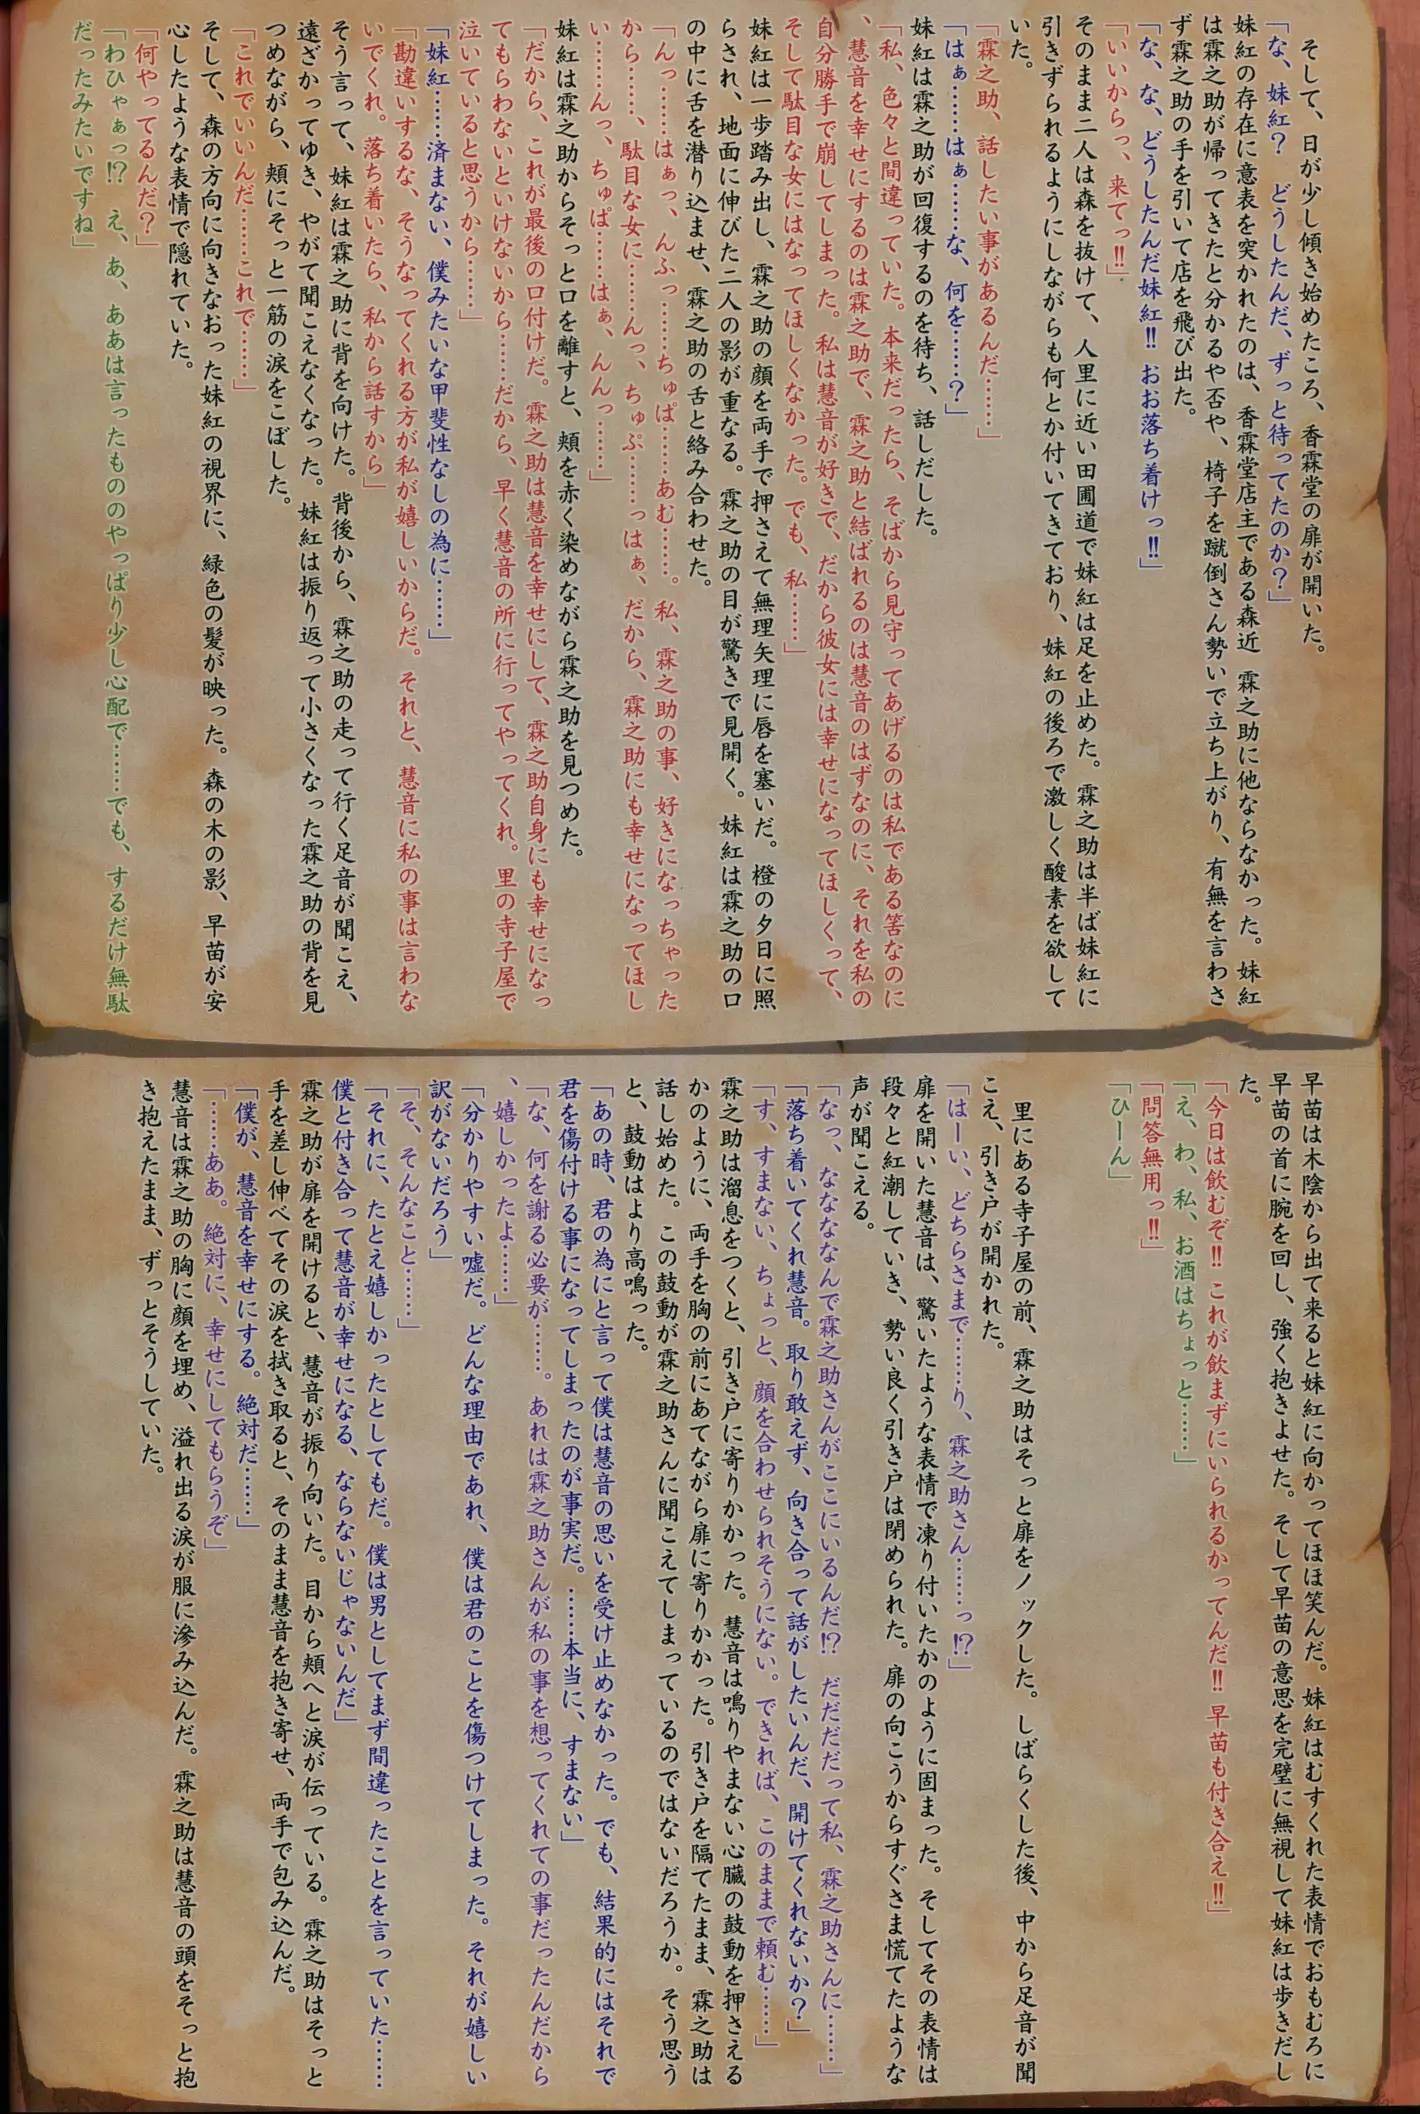 そして、日が少し傾き始めたころ、香霖堂の扉が開いた。
「な、妹紅?　どうしたんだ、ずっと待ってたのか?」
妹紅の存在に意表を突かれたのは、香霖堂店主である森近　霖之助に他ならなかった。妹紅
は霖之助が帰ってきたと分かるや否や、椅子を蹴倒さん勢いで立ち上がり、有無を言わさ
ず霖之助の手を引いて店を飛び出た。
「な、な、どうしたんだ妹紅!!　おお落ち着けっ!!」
「いいからっ、来てっ!!」
そのまま二人は森を抜けて、人里に近い田圃道で妹紅は足を止めた。霖之助は半ば妹紅に
引きずられるようにしながらも何とか付いてきており、妹紅の後ろで激しく酸素を欲して
いた。
「霖之助、話したい事があるんだ……」
「はぁ……はぁ……な、何を……?」
妹紅は霖之助が回復するのを待ち、話しだした。
「私、色々と間違っていた。本来だったら、そばから見守ってあげるのは私である筈なのに
、慧音を幸せにするのは霖之助で、霖之助と結ばれるのは慧音のはずなのに、それを私の
自分勝手で崩してしまった。私は慧音が好きで、だから彼女には幸せになってほしくって、
そして駄目な女にはなってほしくなかった。でも、私……」
妹紅は一歩踏み出し、霖之助の顔を両手で押さえて無理矢理に唇を塞いだ。橙の夕日に照
らされ、地面に伸びた二人の影が重なる。霖之助の目が驚きで見開く。妹紅は霖之助の口
の中に舌を潜り込ませ、霖之助の舌と絡み合わせた。
「んっ……はぁっ、んふっ……ちゅぱ……あむ……。私、霖之助の事、好きになっちゃった
から……、駄目な女に……んっ、ちゅぷ……っはぁ、だから、霖之助にも幸せになってほし
い……んっ、ちゅぱ……はぁ、んんっ……」
妹紅は霖之助からそっと口を離すと、頬を赤く染めながら霖之助を見つめた。
「だから、これが最後の口付けだ。霖之助は慧音を幸せにして、霖之助自身にも幸せになっ
てもらわないといけないから……だから、早く慧音の所に行ってやってくれ。里の寺子屋で
泣いていると思うから……」
「妹紅……済まない、僕みたいな甲斐性なしの為に……」
「勘違いするな、そうなってくれる方が私が嬉しいからだ。それと、慧音に私の事は言わな
いでくれ。落ち着いたら、私から話すから」
そう言って、妹紅は霖之助に背を向けた。背後から、霖之助の走って行く足音が聞こえ、
遠ざかってゆき、やがて聞こえなくなった。妹紅は振り返って小さくなった霖之助の背を見
つめながら、頬にそっと一筋の涙をこぼした。
「これでいいんだ……これで……」
そして、森の方向に向きなおった妹紅の視界に、緑色の髪が映った。森の木の影、早苗が安
心したような表情で隠れていた。
「何やってるんだ?」
「わひゃぁっ!?　え、あ、ああは言ったもののやっぱり少し心配で……でも、するだけ無駄
だったみたいですね」
早苗は木陰から出て来ると妹紅に向かってほほ笑んだ。妹紅はむすくれた表情でおもむろに
早苗の首に腕を回し、強く抱きよせた。そして早苗の意思を完璧に無視して妹紅は歩きだし
た。
「今日は飲むぞ!!　これが飲まずにいられるかってんだ!!　早苗も付き合え!!」
「え、わ、私、お酒はちょっと……」
「問答無用っ!!」
「ひーん」
里にある寺子屋の前、霖之助はそっと扉をノックした。しばらくした後、中から足音が聞
こえ、引き戸が開かれた。
「はーい、どちらさまで……り、霖之助さん……っ!?」
扉を開いた慧音は、驚いたような表情で凍り付いたかのように固まった。そしてその表情は
段々と紅潮していき、勢い良く引き戸は閉められた。扉の向こうからすぐさま慌てたような
声が聞こえる。
「なっ、なななんで霖之助さんがここにいるんだ!?　だだだだって私、霖之助さんに……」
「落ち着いてくれ慧音。取り敢えず、向き合って話がしたいんだ、開けてくれないか?」
「す、すまない、ちょっと、顔を合わせられそうにない。できれば、このままで頼む……」
霖之助は溜息をつくと、引き戸に寄りかかった。慧音は鳴りやまない心臓の鼓動を押さえる
かのように、両手を胸の前にあてながら扉に寄りかかった。引き戸を隔てたまま、霖之助は
話し始めた。この鼓動が霖之助さんに聞こえてしまっているのではないだろうか。そう思う
と、鼓動はより高鳴った。
「あの時、君の為にと言って僕は慧音の思いを受け止めなかった。でも、結果的にはそれで
君を傷付ける事になってしまったのが事実だ。……本当に、すまない」
「な、何を謝る必要が……。あれは霖之助さんが私の事を想ってくれての事だったんだから
、嬉しかったよ……」
「分かりやすい嘘だ。どんな理由であれ、僕は君のことを傷つけてしまった。それが嬉しい
訳がないだろう」
「そ、そんなこと……」
「それに、たとえ嬉しかったとしてもだ。僕は男としてまず間違ったことを言っていた……
僕と付き合って慧音が幸せになる、ならないじゃないんだ」
霖之助が扉を開けると、慧音が振り向いた。目から頬へと涙が伝っている。霖之助はそっと
手を差し伸べてその涙を拭き取ると、そのまま慧音を抱き寄せ、両手で包み込んだ。
「僕が、慧音を幸せにする。絶対だ……」
「……ああ。絶対に、幸せにしてもらうぞ」
慧音は霖之助の胸に顔を埋め、溢れ出る涙が服に滲み込んだ。霖之助は慧音の頭をそっと抱
き抱えたまま、ずっとそうしていた。